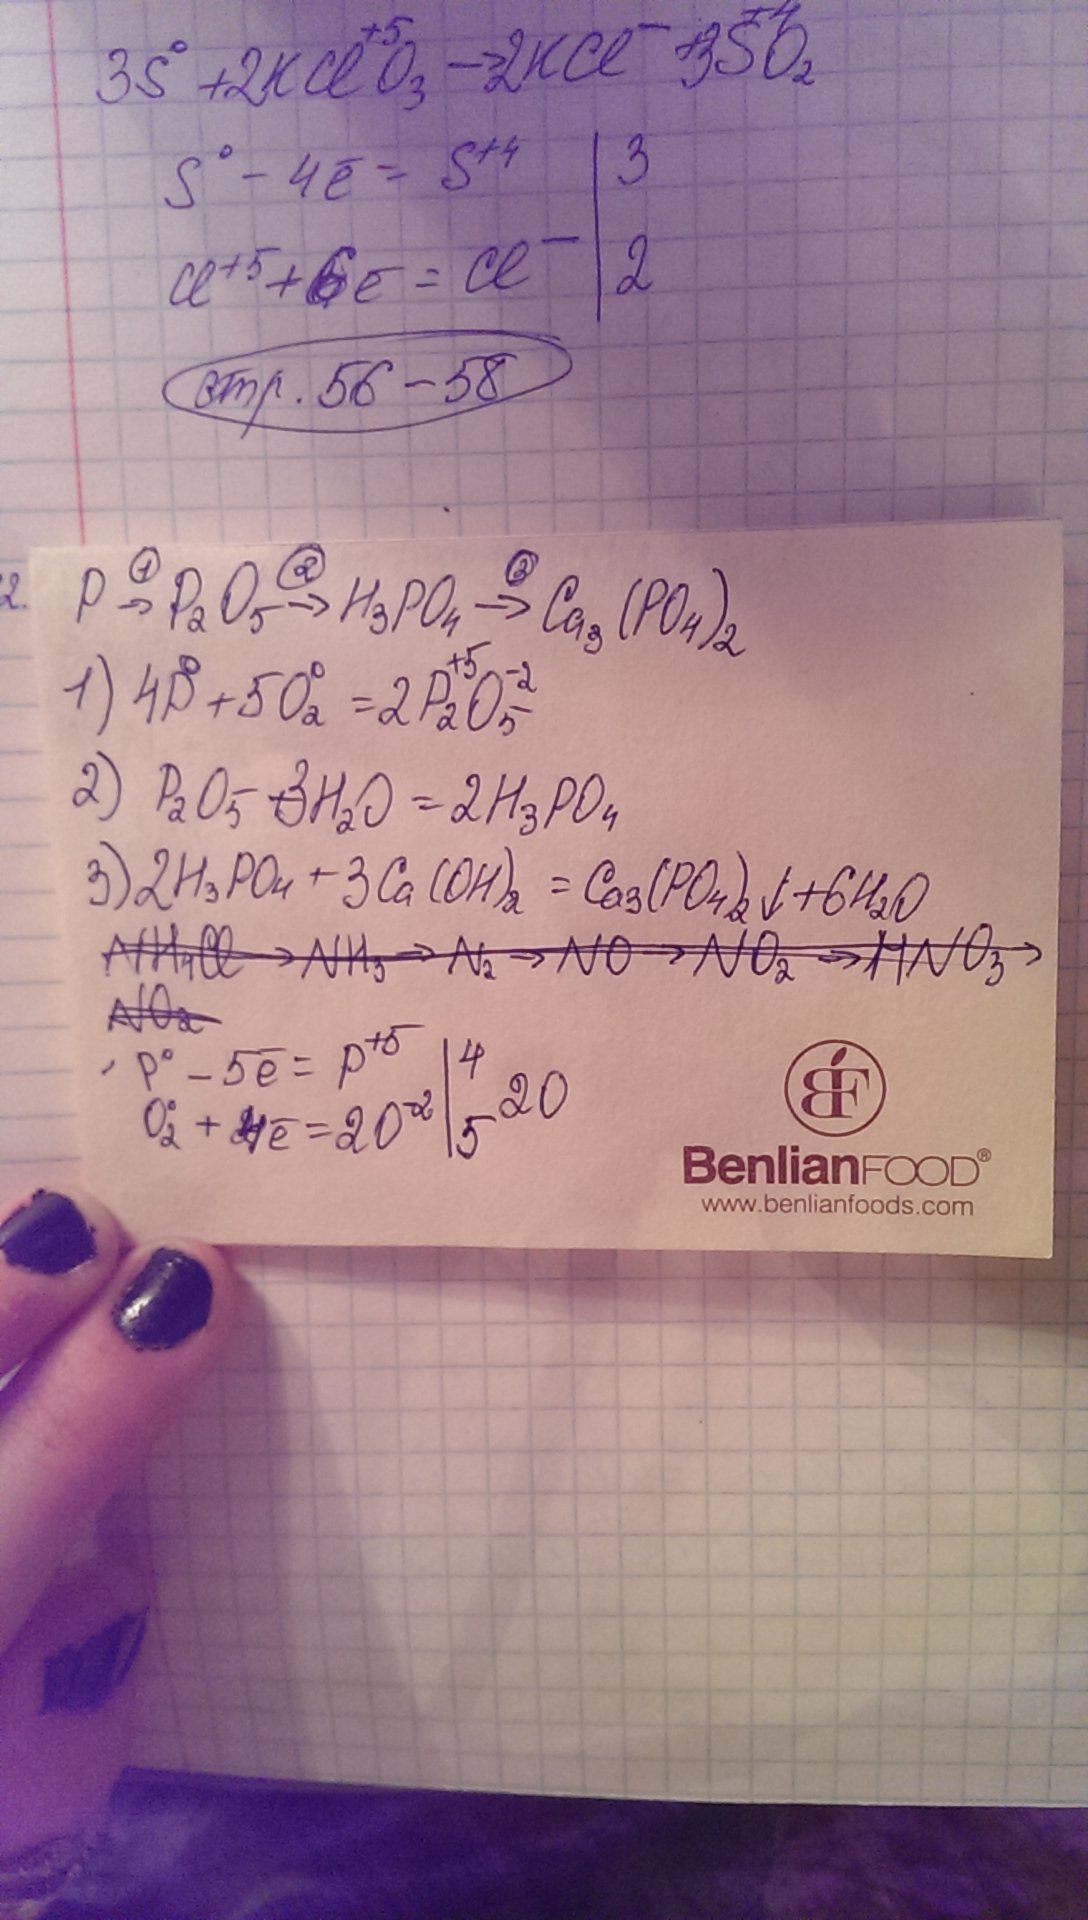 3S⁰ + 2KCl⁺⁵O₃ → 2KCl⁻ + 3S⁺⁴O₂
S⁰ - 4ē = S⁺⁴ | 3
Cl⁺⁵ + 6ē = Cl⁻ | 2
стр. 56 - 58
2. P →① P₂O₅ →② H₃PO₄ →③ Ca₃(PO₄)₂
1) 4P⁰ + 5O₂⁰ = 2P₂⁺⁵O₅⁻²
2) P₂O₅ + 3H₂O = 2H₃PO₄
3) 2H₃PO₄ + 3Ca(OH)₂ = Ca₃(PO₄)₂↓ + 6H₂O
NH₄Cl → NH₃ → N₂ → NO → NO₂ → HNO₃ →
NO₂
P⁰ - 5ē = P⁺⁵ | 4
20
O₂⁰ + 4ē = 2O⁻² | 5
BF
BenlianFOOD®
www.benlianfoods.com